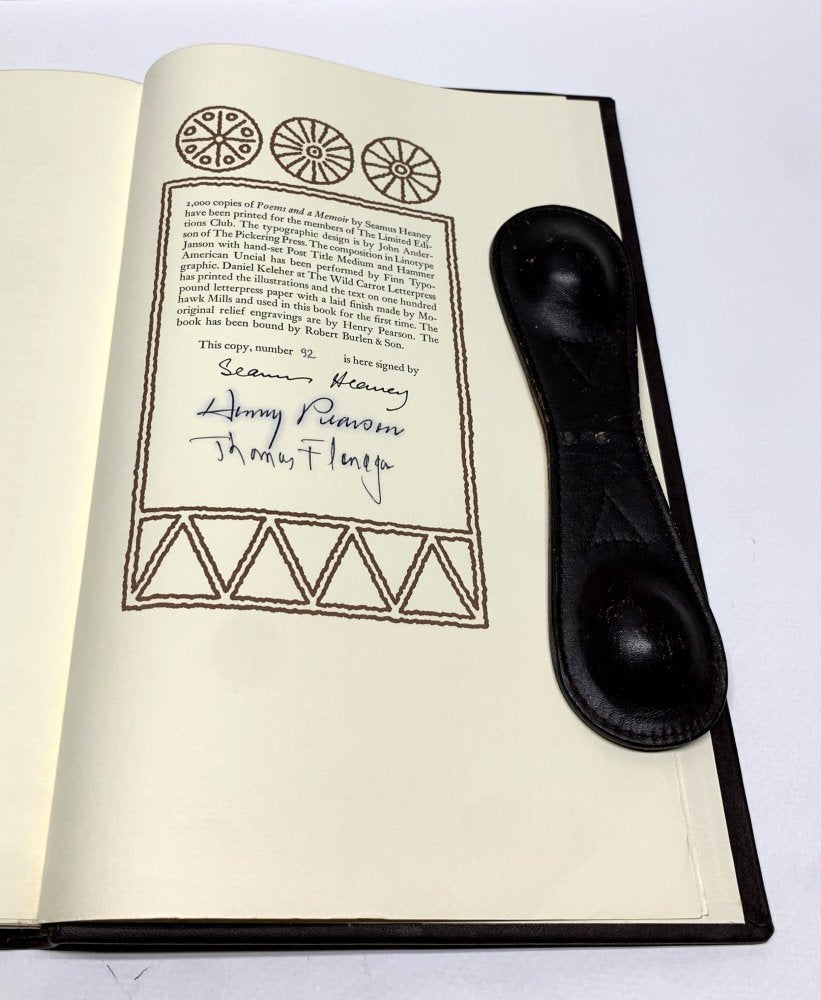 2,000 copies of Poems and a Memoir by Seamus Heaney
have been printed for the members of The Limited Edi-
tions Club. The typographic design is by John Ander-
son of The Pickering Press. The composition in Linotype
Janson with hand-set Post Title Medium and Hammer
American Uncial has been performed by Finn Typo-
graphic. Daniel Keleher at The Wild Carrot Letterpress
has printed the illustrations and the text on one hundred
pound letterpress paper with a laid finish made by Mo-
hawk Mills and used in this book for the first time. The
original relief engravings are by Henry Pearson. The
book has been bound by Robert Burlen & Son.
This copy, number 92 is here signed by
Seamus Heaney
Henry Pearson
Thomas Flanagan